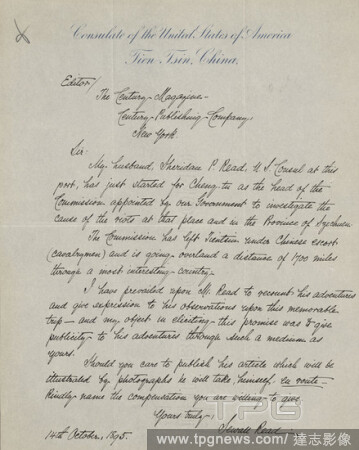 Consulate of the United States of America
Tien Tsin, China.
Editor/
The Century Magazine
Century Publishing Company
New York.
Sir:
My husband, Sheridan P. Read, U S Consul at this
port, has just started for Cheng-tu as the head of the
Commission appointed by our Government to investigate the
cause of the riots at that place and in the Province of Szechuen.
The Commission has left Tientsin under Chinese escort
(cavalrymen) and is going overland a distance of 1700 miles
through a most interesting country.
I have prevailed upon Mr. Read to recount his adventures
and give expression to his observations upon this memorable
trip — and my object in eliciting this promise was to give
publicity to his adventures through such a medium as
yours.
Should you care to publish his article which will be
illustrated by photographs he will take, himself, en route —
Kindly name the compensation you are willing to give.
Yours truly,
Read
14th October, 1895.
TPG
www.tpgnews.com/達志影像